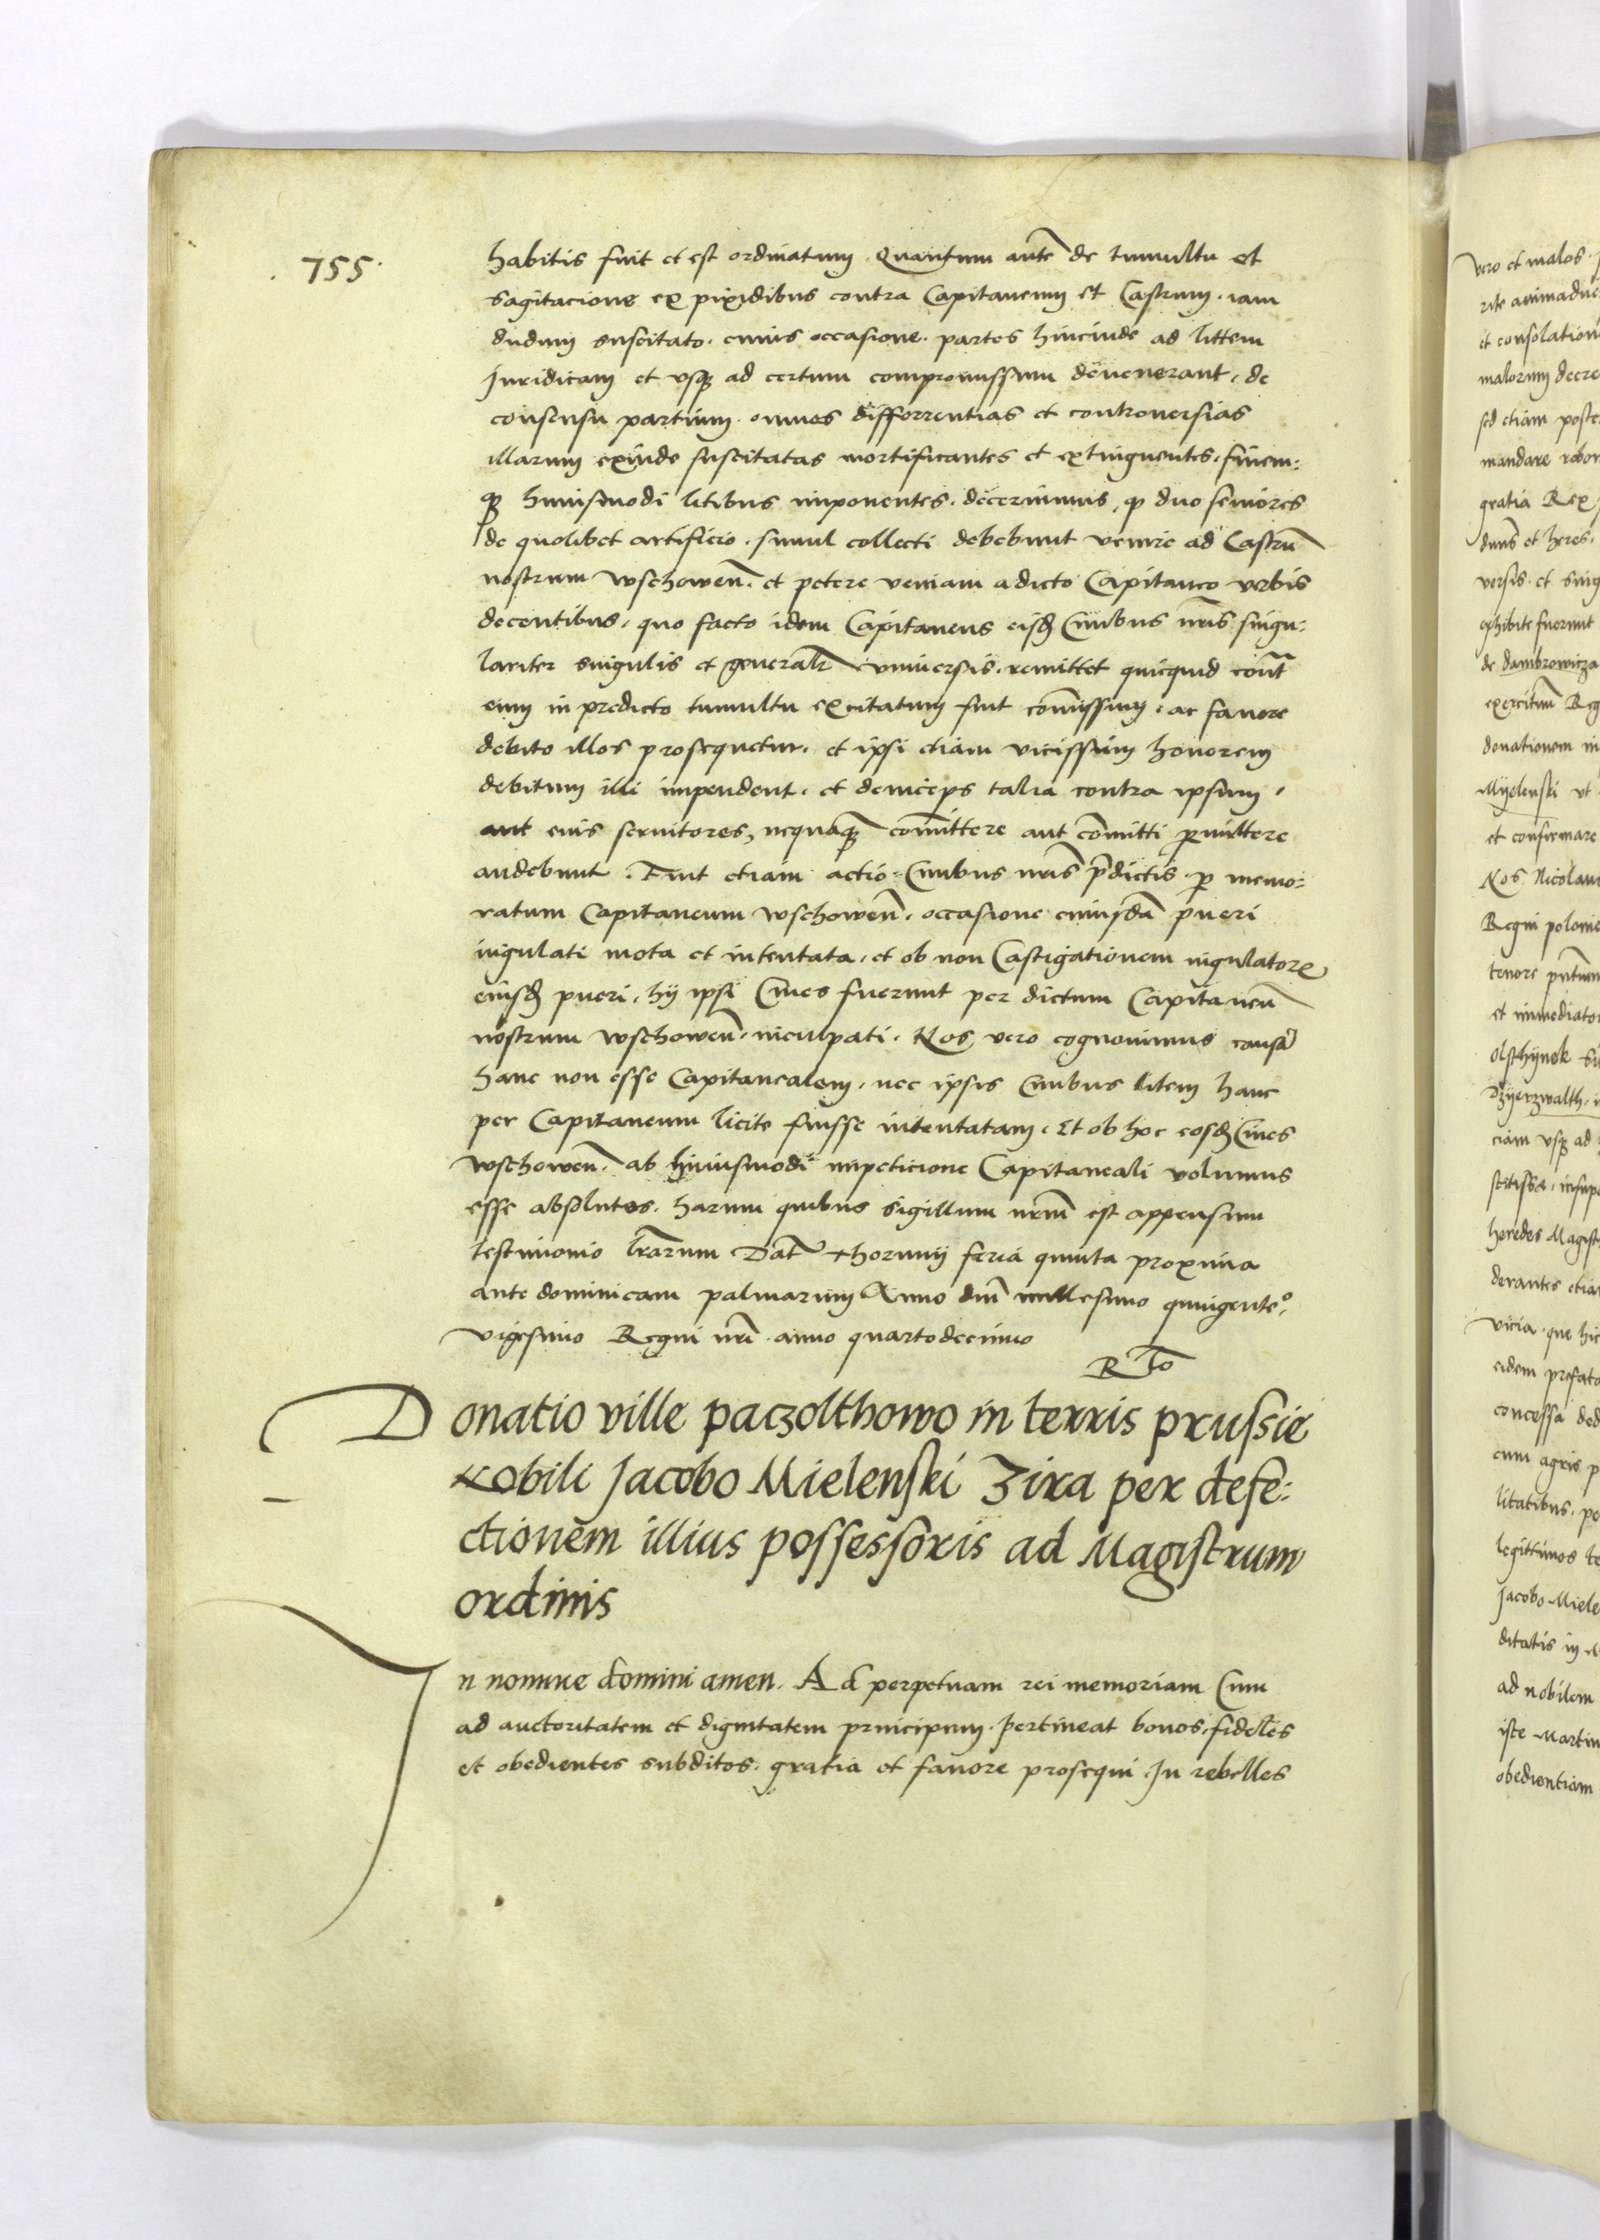 755.
habitis fuit et est ordinatum. Quantum autē de tumultu et
sagitacione ex pixidibus contra Capitaneum et Castrum. iam
dudum suscitato. cuius occasione. partes hincinde ad littem
Juridicam et vsqȝ ad certum compromissum deuenerant. de
consensu partium. omnes differrentias et controuersias
illarum exinde suscitatas mortificantes et extinguentes. finem:
qȝ huiusmodi litibus imponentes. decernimus, qȝ duo seniores
de quolibet artificio. simul collecti debebunt venire ad Castrū
nostrum wschowen̄. et petere veniam a dicto Capitaneo verbis
decentibus. quo facto idem Capitaneus eisd̄ Ciuibus nr̄is singu:
lariter singulis et generalr̄ vniuersis. remittet quicquid cont̄
eum in predicto tumultu excitatum fuit com̄issum. ac fauore
debito illos prosequetur. et ipsi etiam vicissim honorem
debitum illi impendent. et deinceps talia contra ipsum.
aut eius seruitores, nequāqȝ com̄ittere aut com̄itti p̄mittere
audebunt. Fuit etiam actio Ciuibus nr̄is p̄dictis p̄ memo:
ratum Capitaneum wschowen̄. occasione cuiusdā pueri
iugulati mota et intentata. et ob non Castigationem iugulatore
eiusd̄ pueri. hij ipsi Ciues fuerunt per dictum Capitaneū
nostrum wschowen̄. inculpati. Nos vero cognouimus causā
hanc non esse Capitanealem. nec ipsis Ciuibus litem hanc
per Capitaneum licite fuisse intentatam. Et ob hoc eosd̄ Ciues
wschowen̄. ab huiusmodi impeticione Capitaneali volumus
esse absolutos. harum quibus sigillum nr̄um est appensum
testimonio lr̄arum Dat̄ Thorunij feria quinta proxima
ante dominicam palmarum Anno dn̄i millesimo quingenteº.
vigesimo Regni nr̄i. anno quartodecimo
R Tō
Donatio ville paczolthowo in terris prussie
Nobili Jacobo Mielenski Zira per defe:
ctionem illius possessoris ad Magistrum
ordinis
In nomine domini amen. Ad perpetuam rei memoriam Cum
ad auctoritatem et dignitatem principum. pertineat bonos. fideles
et obedientes subditos. gratia et fauore prosequi. In rebelles
vero et malos.
rite animadue
et consolation
malorum decre
sed etiam poste
mandare robor
gratia Rex
dn̄us et heres.
versis. et sing
exhibite fuerunt
de dambrowicza
exercituū Reg
donationem in
Myelenski vt
et confirmare
Nos Nicolaus
Regni polonie
tenore pn̄tium
et immediato
olschynek
Dzyerzwalth.
ciam vsqȝ ad
heredes Magist
derantes etia
vicia. que hic
eidem prefato
concessa ded
cum agris p
litatibus. pe
legittimos
Jacobo Miele
ditatis in
ad nobilem
iste Martin
obedientiam